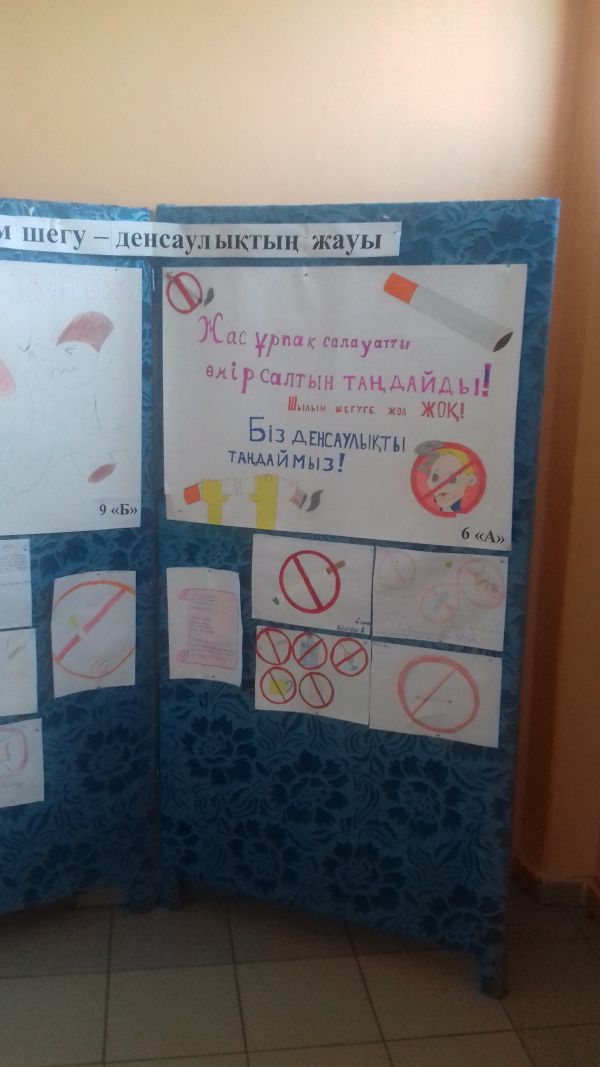 м шегу – денсаулықтың жауы
Жас ұрпақ салауатты
өмір салтын таңдайды!
Шылым шегуге жол жоқ!
Біз денсаулықты
таңдаймыз!
9 «Б»
6 «А»